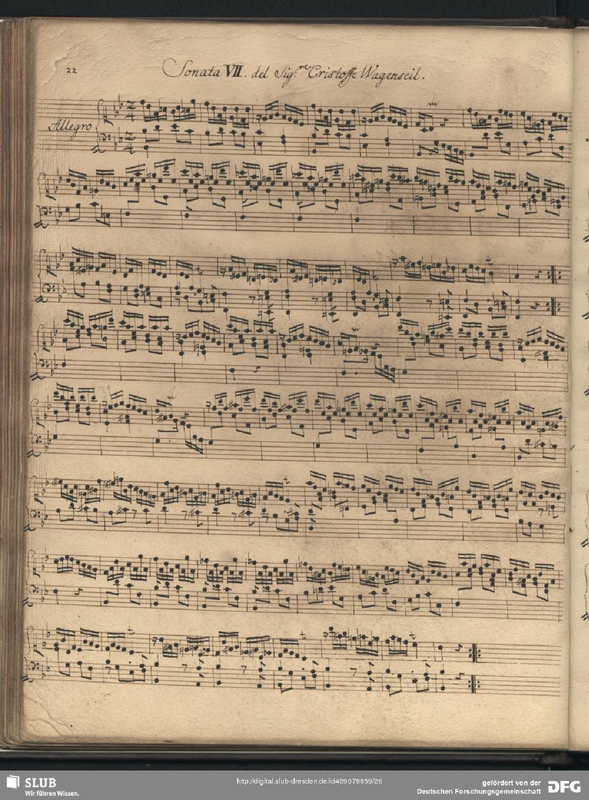 22
Sonata VII. del Sig.re Cristoffe Wagenseil.
Allegro
SLUB
Wir führen Wissen.
http://digital.slub-dresden.de/id409078839/26
gefördert von der
Deutschen Forschungsgemeinschaft
DFG